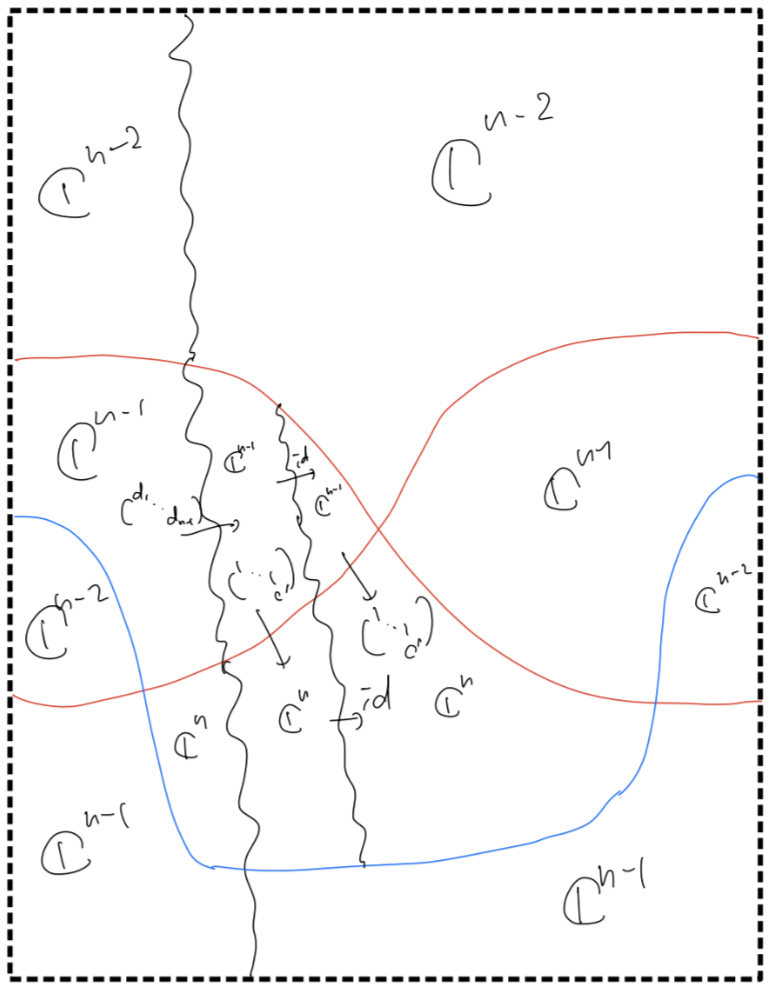 ℂⁿ⁻²
ℂⁿ⁻²
ℂⁿ⁻¹
ℂⁿ⁻¹
id
ℂⁿ⁻¹
ℂⁿ⁻¹
(d₁ ⋱ dₙ₋₁)
(1 ⋱ 1 cⁿ)
ℂⁿ⁻²
ℂⁿ⁻²
(1 ⋱ 1 cⁿ)
ℂⁿ
ℂⁿ
id
ℂⁿ
ℂⁿ⁻¹
ℂⁿ⁻¹